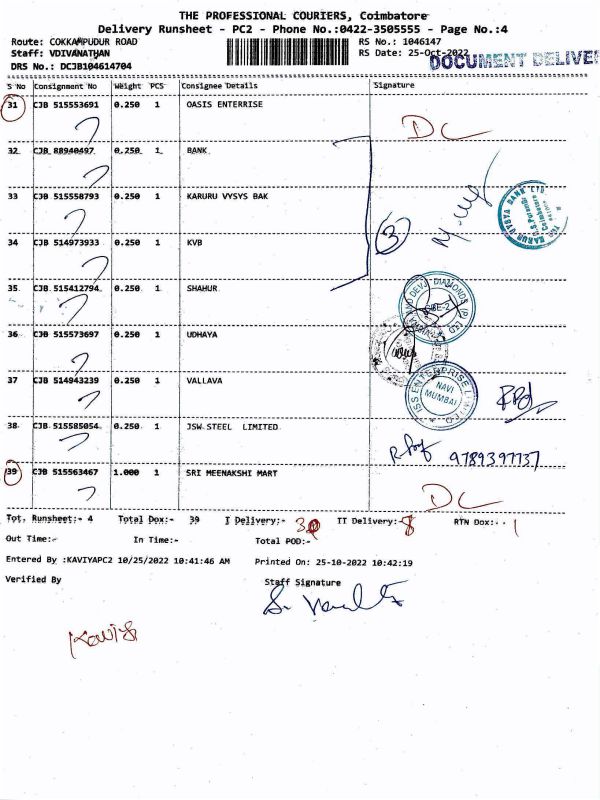 THE PROFESSIONAL COURIERS, Coimbatore
Delivery Runsheet - PC2 - Phone No.:0422-3505555 - Page No.:4
Route: COKKAMPUDUR ROAD RS No.: 1046147
Staff: VDIVANATHAN RS Date: 25-Oct-2022
DOCUMENT DELIVE
DRS No.: DCJB104614704
S No Consignment No Weight PCS Consignee Details Signature
31 CJB 515553691 0.250 1 OASIS ENTERRISE
DC
32 CJB 88940497 0.250 1 BANK
33 CJB 515558793 0.250 1 KARURU VYSYS BAK
34 CJB 514973933 0.250 1 KVB
3
35 CJB 515412794 0.250 1 SHAHUR
36 CJB 515573697 0.250 1 UDHAYA
37 CJB 514943239 0.250 1 VALLAVA
NAVI
MUMBAI
38 CJB 515585054 0.250 1 JSW STEEL LIMITED
9789397737
39 CJB 515563467 1.000 1 SRI MEENAKSHI MART
DC
Tot. Runsheet:- 4 Total Dox:- 39 I Delivery:- II Delivery:- 8 RTN Dox:- 1
Out Time:- In Time:- Total POD:-
Entered By :KAVIYAPC2 10/25/2022 10:41:46 AM Printed On: 25-10-2022 10:42:19
Verified By Staff Signature